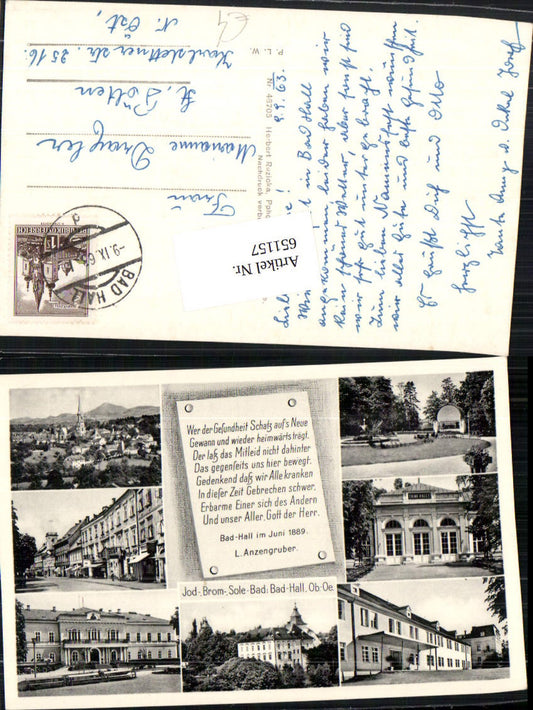 Artikel Nr.
651157
9.9.63.
in Bad Hall
angekommen, leider haben wir
Kein schönes Wetter, aber sonst sind
wir sehr gut untergebracht.
Zum lieben Namensfest wünschen
wir alles Gute und beste Gesundheit.
Es grüßt Dich und Otto
herzlichst
Tante Anny u. Onkel Josef
P. L. W.
Nr. 45705 Herbert Ruzicka,
Nachdruck
Frau
Marianne
St. Pölten
25 16
N. Öst.
BAD HALL
-9.IX.6
Wer der Gesundheit Schatz auf's Neue
Gewann und wieder heimwärts trägt,
Der laß das Mitleid nicht dahinter,
Das gegenseits uns hier bewegt.
Gedenkend daß wir Alle kranken
In dieser Zeit Gebrechen schwer,
Erbarme Einer sich des Andern
Und unser Aller, Gott der Herr.
Bad-Hall im Juni 1889.
L. Anzengruber.
Jod-, Brom-, Sole-Bad: Bad-Hall, Ob-Oe.